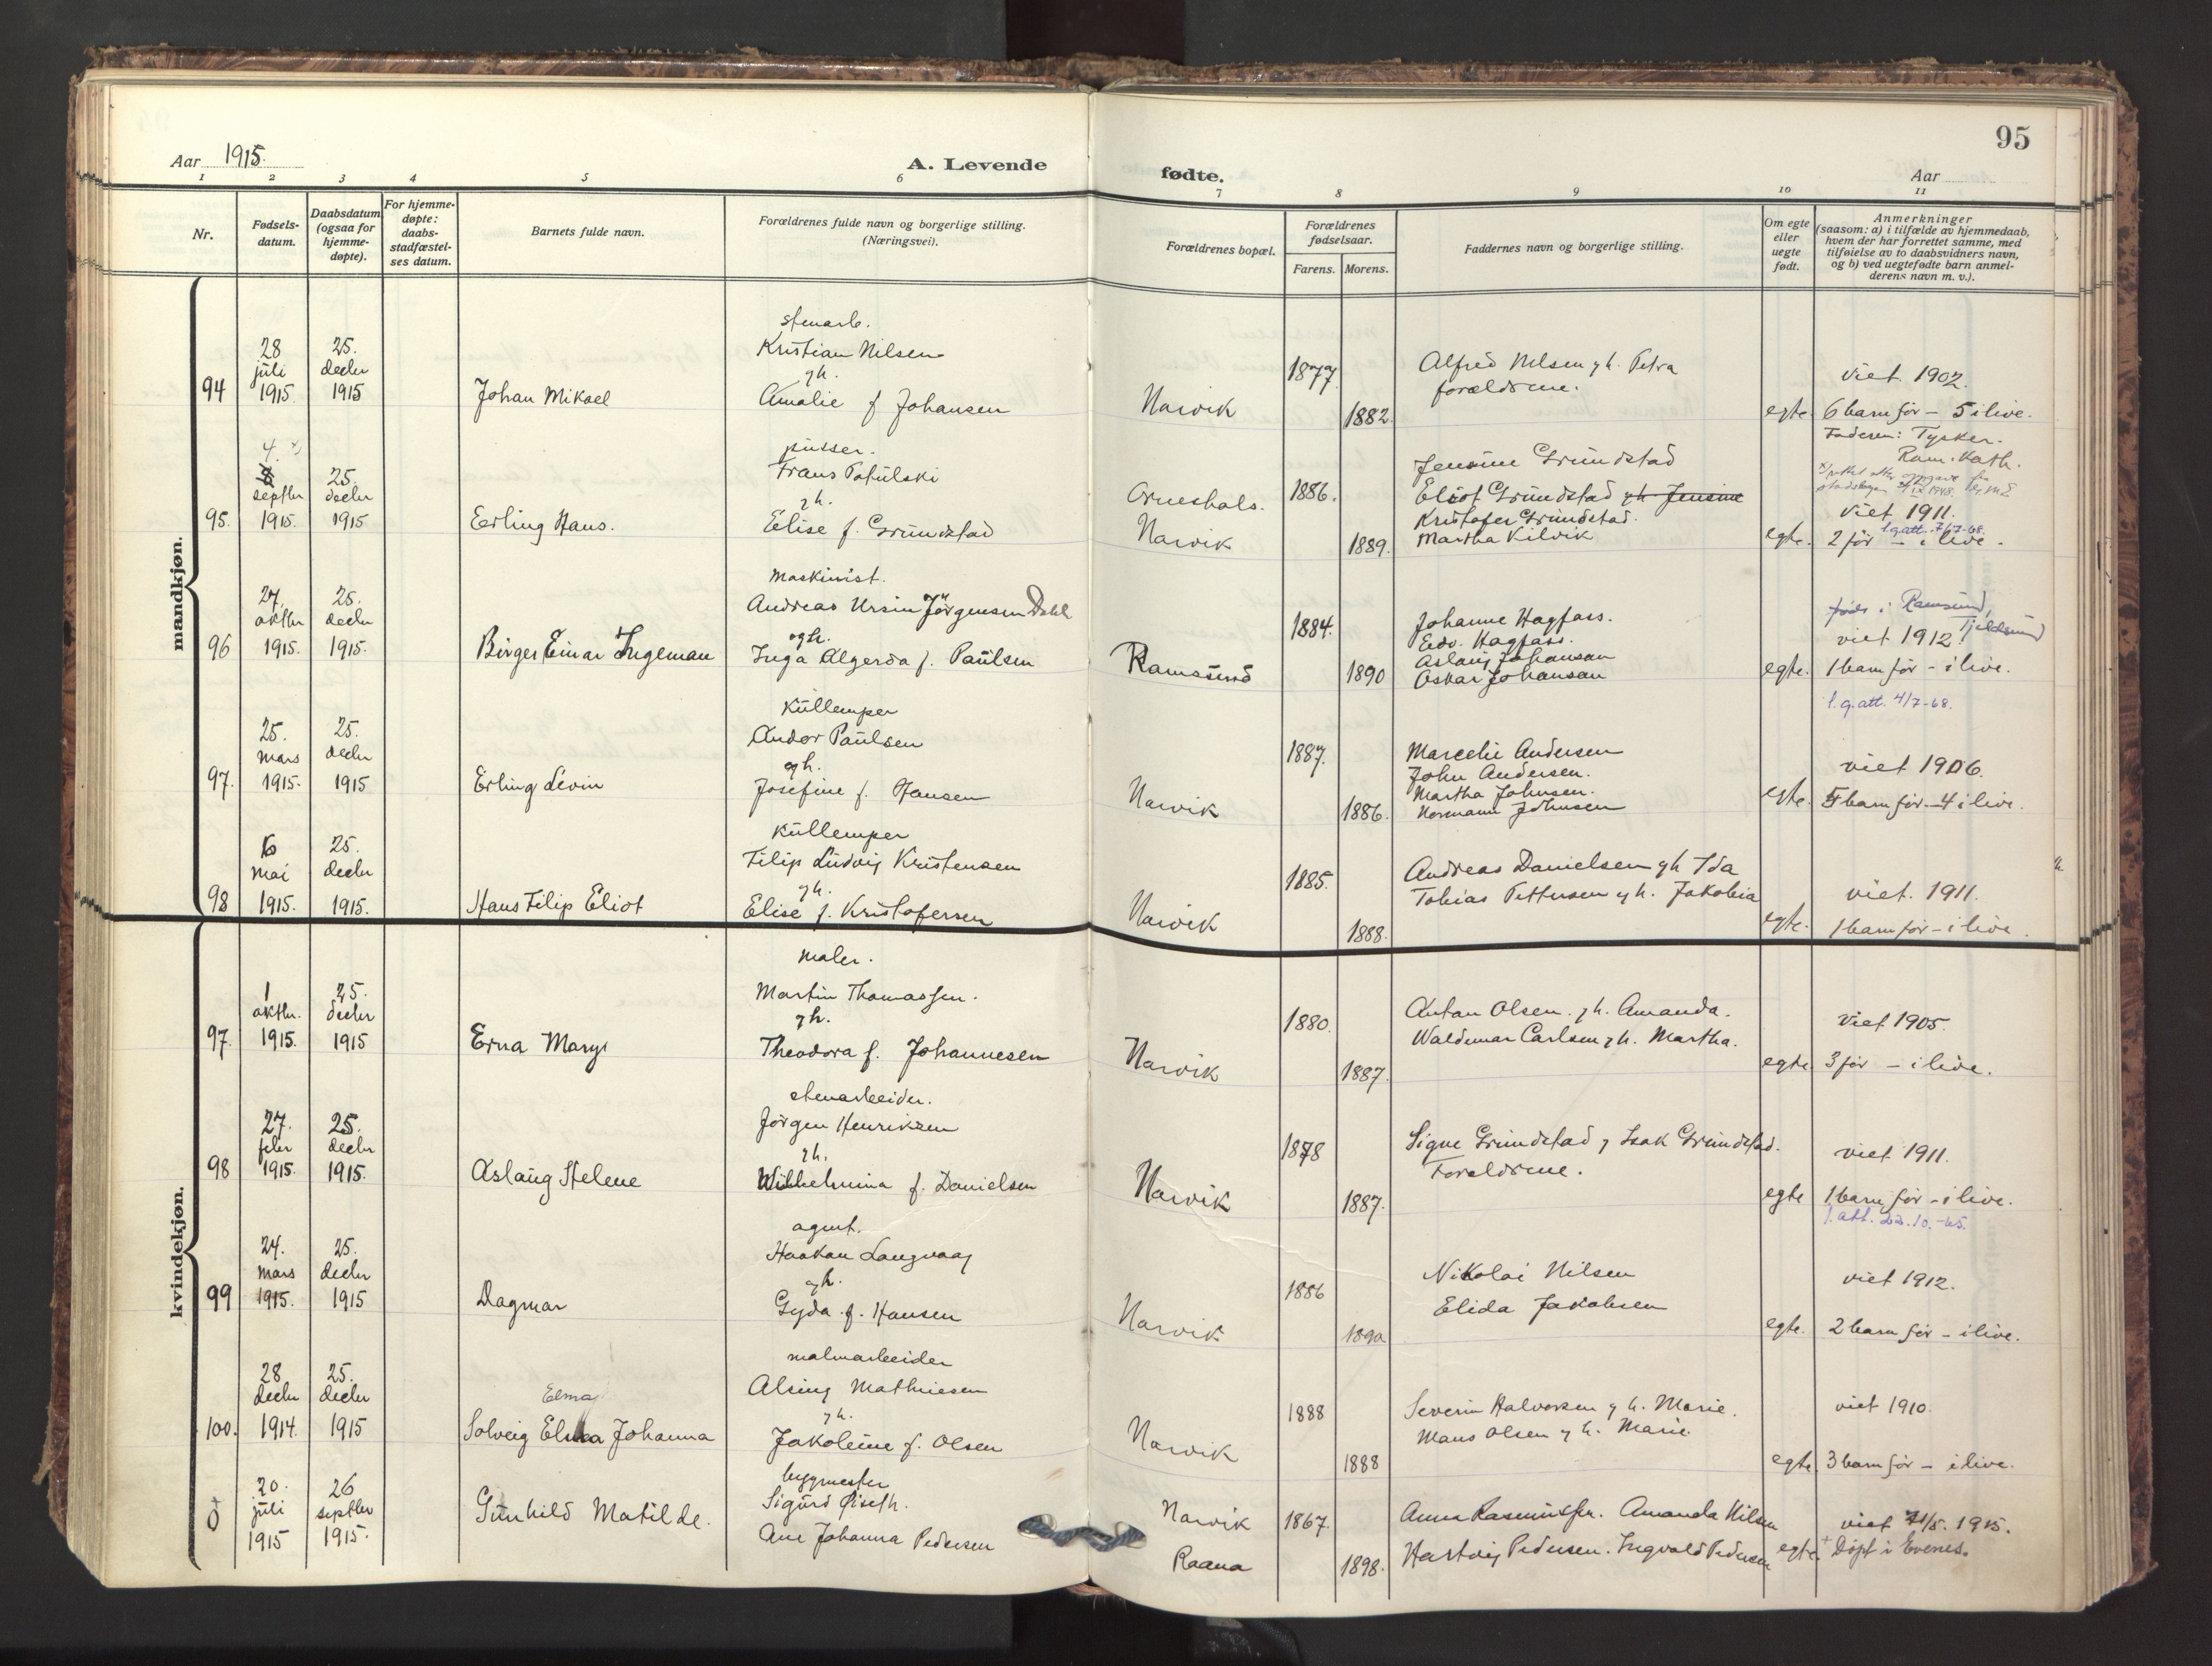 95
Aar 1915.
A. Levende
fødte.
Aar
1 2 3 4 5 6 7 8 9 10 11
Nr.
Fødsels-
datum.
Daabsdatum
(ogsaa for
hjemme-
døpte).
For hjemme-
døpte:
daabs-
stadfæstel-
ses datum.
Barnets fulde navn.
Forældrenes fulde navn og borgerlige stilling.
(Næringsvei).
Forældrenes bopæl.
Forældrenes
fødselsaar.
Farens. Morens.
Faddernes navn og borgerlige stilling.
Om egte
eller
uegte
født.
Anmerkninger
(saasom: a) i tilfælde av hjemmedaab,
hvem der har forrettet samme, med
tilføielse av to daabsvidners navn,
og b) ved uegtefødte barn anmel-
derens navn m. v.).
mandkjøn.
94
28
juli
1915.
25.
decbr
1915
Johan Mikael
stenarb.
Kristian Nilsen
gh.
Amalie f Johansen
Narvik
1877.
1882.
Alfred Nilsen gh. Petra
forældrene.
egte.
viet 1902.
6 barn før – 5 i live.
95.
4. x)
septbr
1915.
25.
decbr
1915
Erling Hans.
pusser.
Frans Potulski
gh.
Elise f. Grundstad
Orneshals.
Narvik
1886.
1889.
Jensine Grundstad
Eliot Grundstad gh Jensine
Kristofer Grundstad.
Martha Kilvik
egte.
Faderen: Tysker.
Rom. Kath.
viet 1911.
l.g.att. 7/7-68.
2 før – i live.
96
27.
oktbr
1915.
25.
decbr
1915.
Birger Einar Ingeman
maskinist.
Andreas Ursin Jörgensen Dahl
ogh.
Inga Algerda f. Paulsen
Ramsund
1884.
1890
Johanne Hagfass.
Edv. Hagfass.
Aslaug Johansan
Oskar Johansan
egte.
født i Ramsund,
Tjeldsund
viet 1912.
1 barn før – i live.
l.g.att. 4/7-68.
97.
25.
mars
1915.
25.
decbr
1915
Erling Levin
Kullemper
Andor Paulsen
ogh.
Josefine f. Hansen
Narvik
1887.
1886.
Marcelie Andersen
John Andersen.
Martha Johnsen.
Normann Johnsen
egte.
viet 1906.
5 barn før – 4 i live.
98
6
mai
1915.
25.
decbr
1915.
Hans Filip Eliot
Kullemper
Filip Ludvig Kristensen
gh.
Elise f. Kristofersen
Narvik
1885.
1888.
Andreas Danielsen gh Ida
Tobias Pettersen gh. Jakobia
egte.
viet. 1911.
1 barn før – i live.
kvindekjøn.
97.
1
oktbr.
1915.
25.
decbr
1915
Erna Mary
maler.
Martin Thomassen.
gh.
Theodora f. Johannesen
Narvik
1880.
1887.
Antan Olsen. gh. Amanda.
Waldemar Carlsen gh. Martha.
egte
viet 1905.
3 før – i live.
98
27.
febr
1915.
25.
decbr
1915.
Aslaug Helene
stenarbeider.
Jörgen Henriksen
gh.
Wilhelmina f. Danielsen
Narvik
1878
1887.
Signe Grundstad g Isak Grundstad.
Foreldrene.
egte
viet 1911.
1 barn før – i live.
l.att. 22.10.-65.
99
24.
mars
1915.
25.
decbr
1915
Dagmar
agent.
Haakan Langvaag
gh.
Gyda f. Hansen
Narvik
1886
1890
Nikolai Nilsen
Elida Jakobsen
egte.
viet 1912.
2 barn før – i live.
100.
28
decbr
1914.
25.
decbr
1915
Elma
Solveig Elma Johanna
malmarbeider
Alsing Mathiesen
gh.
Jakobine f. Olsen
Narvik
1888
1888
Severin Halvorsen g h. Marie.
Mans Olsen g h. Marie.
egte.
viet 1910.
3 barn før – i live.
+
0
20.
juli
1915
26
septbr
1915.
Gunhild Matilde.
bygmester
Sigurd Øiseth.
Ane Johanna Pedersen
Narvik
Raana
1867.
1898.
Anna Rasmussen. Amanda Nilsen
Hartvig Pedersen. Ingvald Pedersen
egte.
viet 21/5. 1915.
+ Døpt i Evenes.